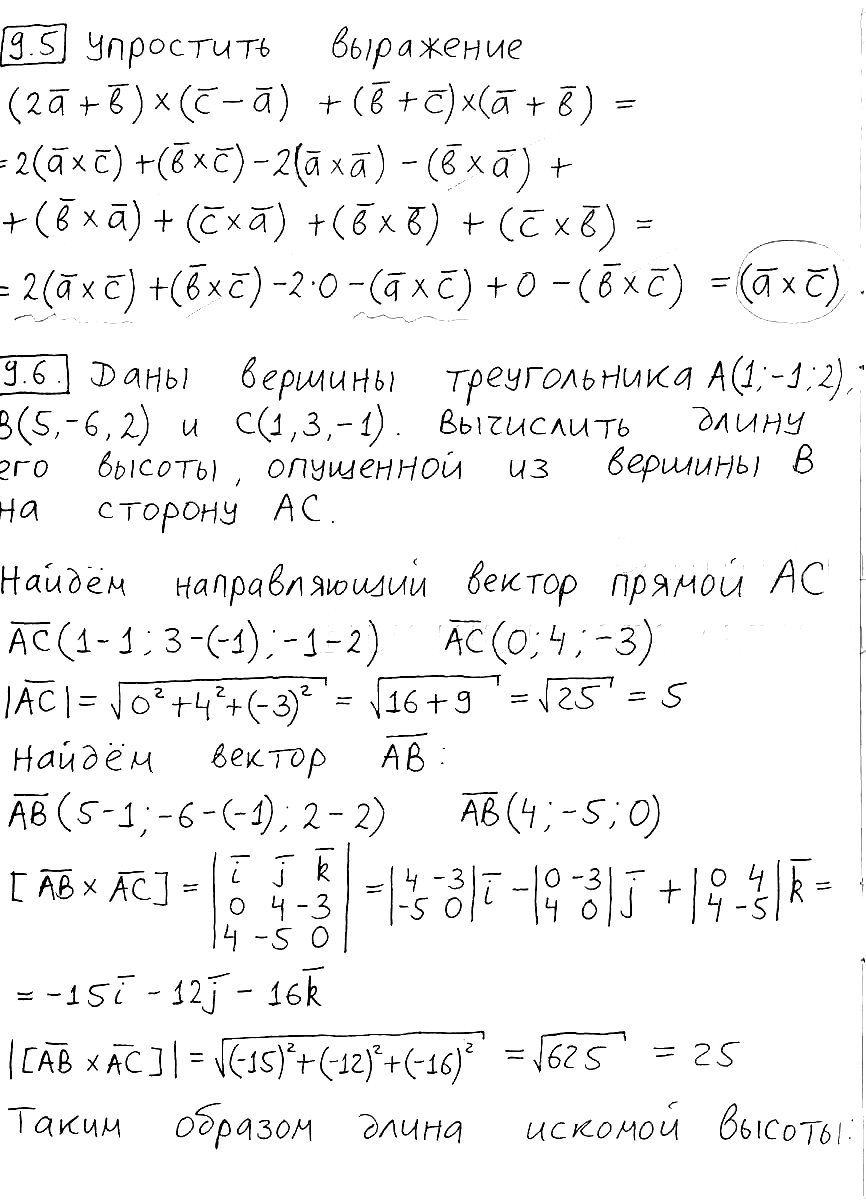 9.5 Упростить выражение
(2a̅ + b̅) × (c̅ − a̅) + (b̅ + c̅) × (a̅ + b̅) =
= 2(a̅ × c̅) + (b̅ × c̅) − 2(a̅ × a̅) − (b̅ × a̅) +
+ (b̅ × a̅) + (c̅ × a̅) + (b̅ × b̅) + (c̅ × b̅) =
= 2(a̅ × c̅) + (b̅ × c̅) − 2·0 − (a̅ × c̅) + 0 − (b̅ × c̅) = (a̅ × c̅).
9.6. Даны вершины треугольника A(1;-1;2),
B(5,-6,2) и C(1,3,-1). Вычислить длину
его высоты, опущенной из вершины B
на сторону AC.
Найдём направляющий вектор прямой AC
A̅C̅(1-1; 3-(-1); -1-2) A̅C̅(0; 4; -3)
|A̅C̅| = √(0²+4²+(-3)²) = √(16+9) = √25 = 5
Найдём вектор A̅B̅:
A̅B̅(5-1; -6-(-1); 2-2) A̅B̅(4; -5; 0)
[A̅B̅ × A̅C̅] = |i̅ j̅ k̅; 0 4 -3; 4 -5 0| = |4 -3; -5 0| i̅ − |0 -3; 4 0| j̅ + |0 4; 4 -5| k̅ =
= -15i̅ - 12j̅ - 16k̅
|[A̅B̅ × A̅C̅]| = √((-15)²+(-12)²+(-16)²) = √625 = 25
Таким образом длина искомой высоты: